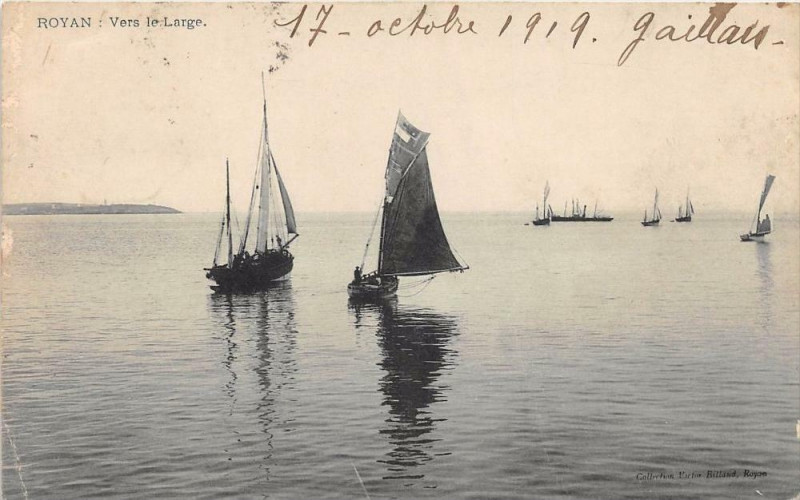 ROYAN : Vers le Large.
17 - octobre 1919. gaillau -
Collection Victor Billaud, Royan